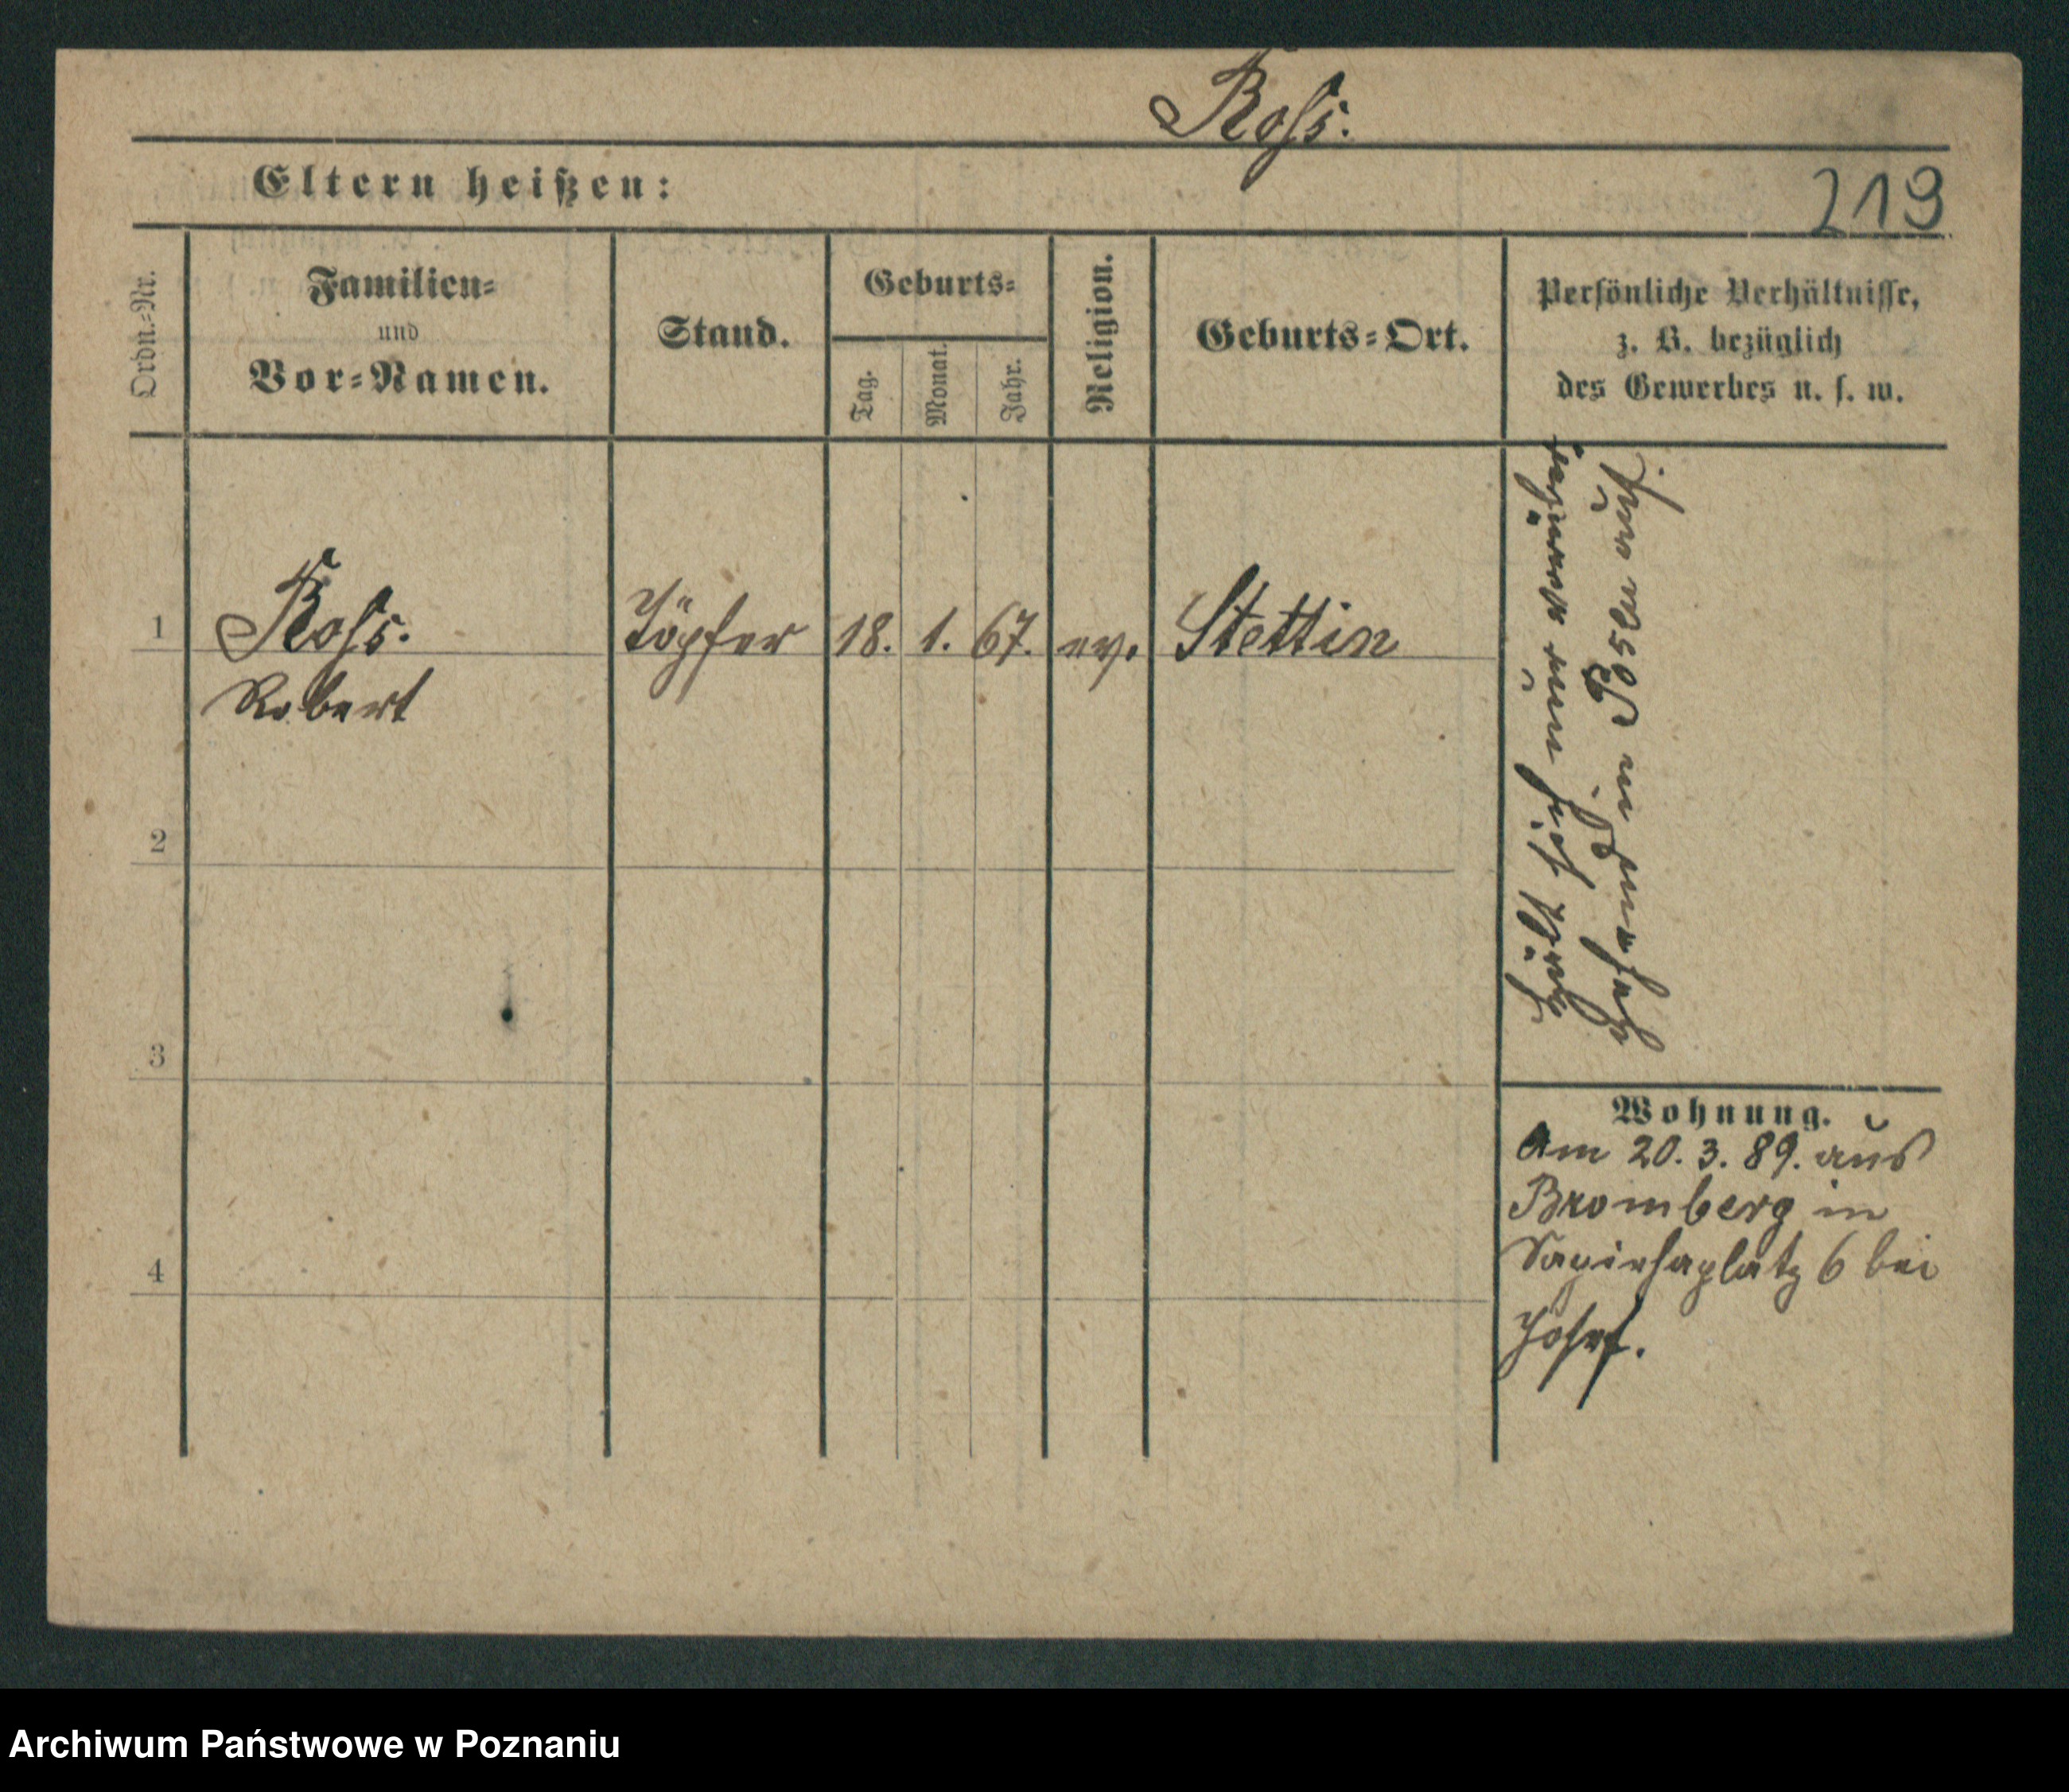 Roß.
Eltern heißen:
219
Ordn.-Nr.
Familien-
und
Vor-Namen.
Stand.
Geburts-
Tag.
Monat.
Jahr.
Religion.
Geburts-Ort.
Persönliche Verhältnisse,
z. B. bezüglich
des Gewerbes u. s. w.
1
Roß.
Robert
Töpfer
18. 1. 67.
ev.
Stettin
hält sich nur
in Posen auf.
2
3
4
Wohnung.
Am 20. 3. 89. aus
Bromberg in
Sapiehaplatz 6 bei
Josef.
Archiwum Państwowe w Poznaniu